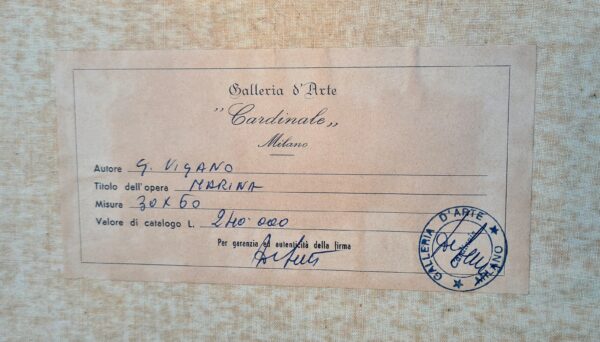 Galleria d'Arte
"Cardinale"
Milano
Autore G. VIGANO
Titolo dell'opera MARINA
Misura 30X60
Valore di catalogo L. 240.000
Per garanzia ed autenticità della firma
GALLERIA D'ARTE
MILANO